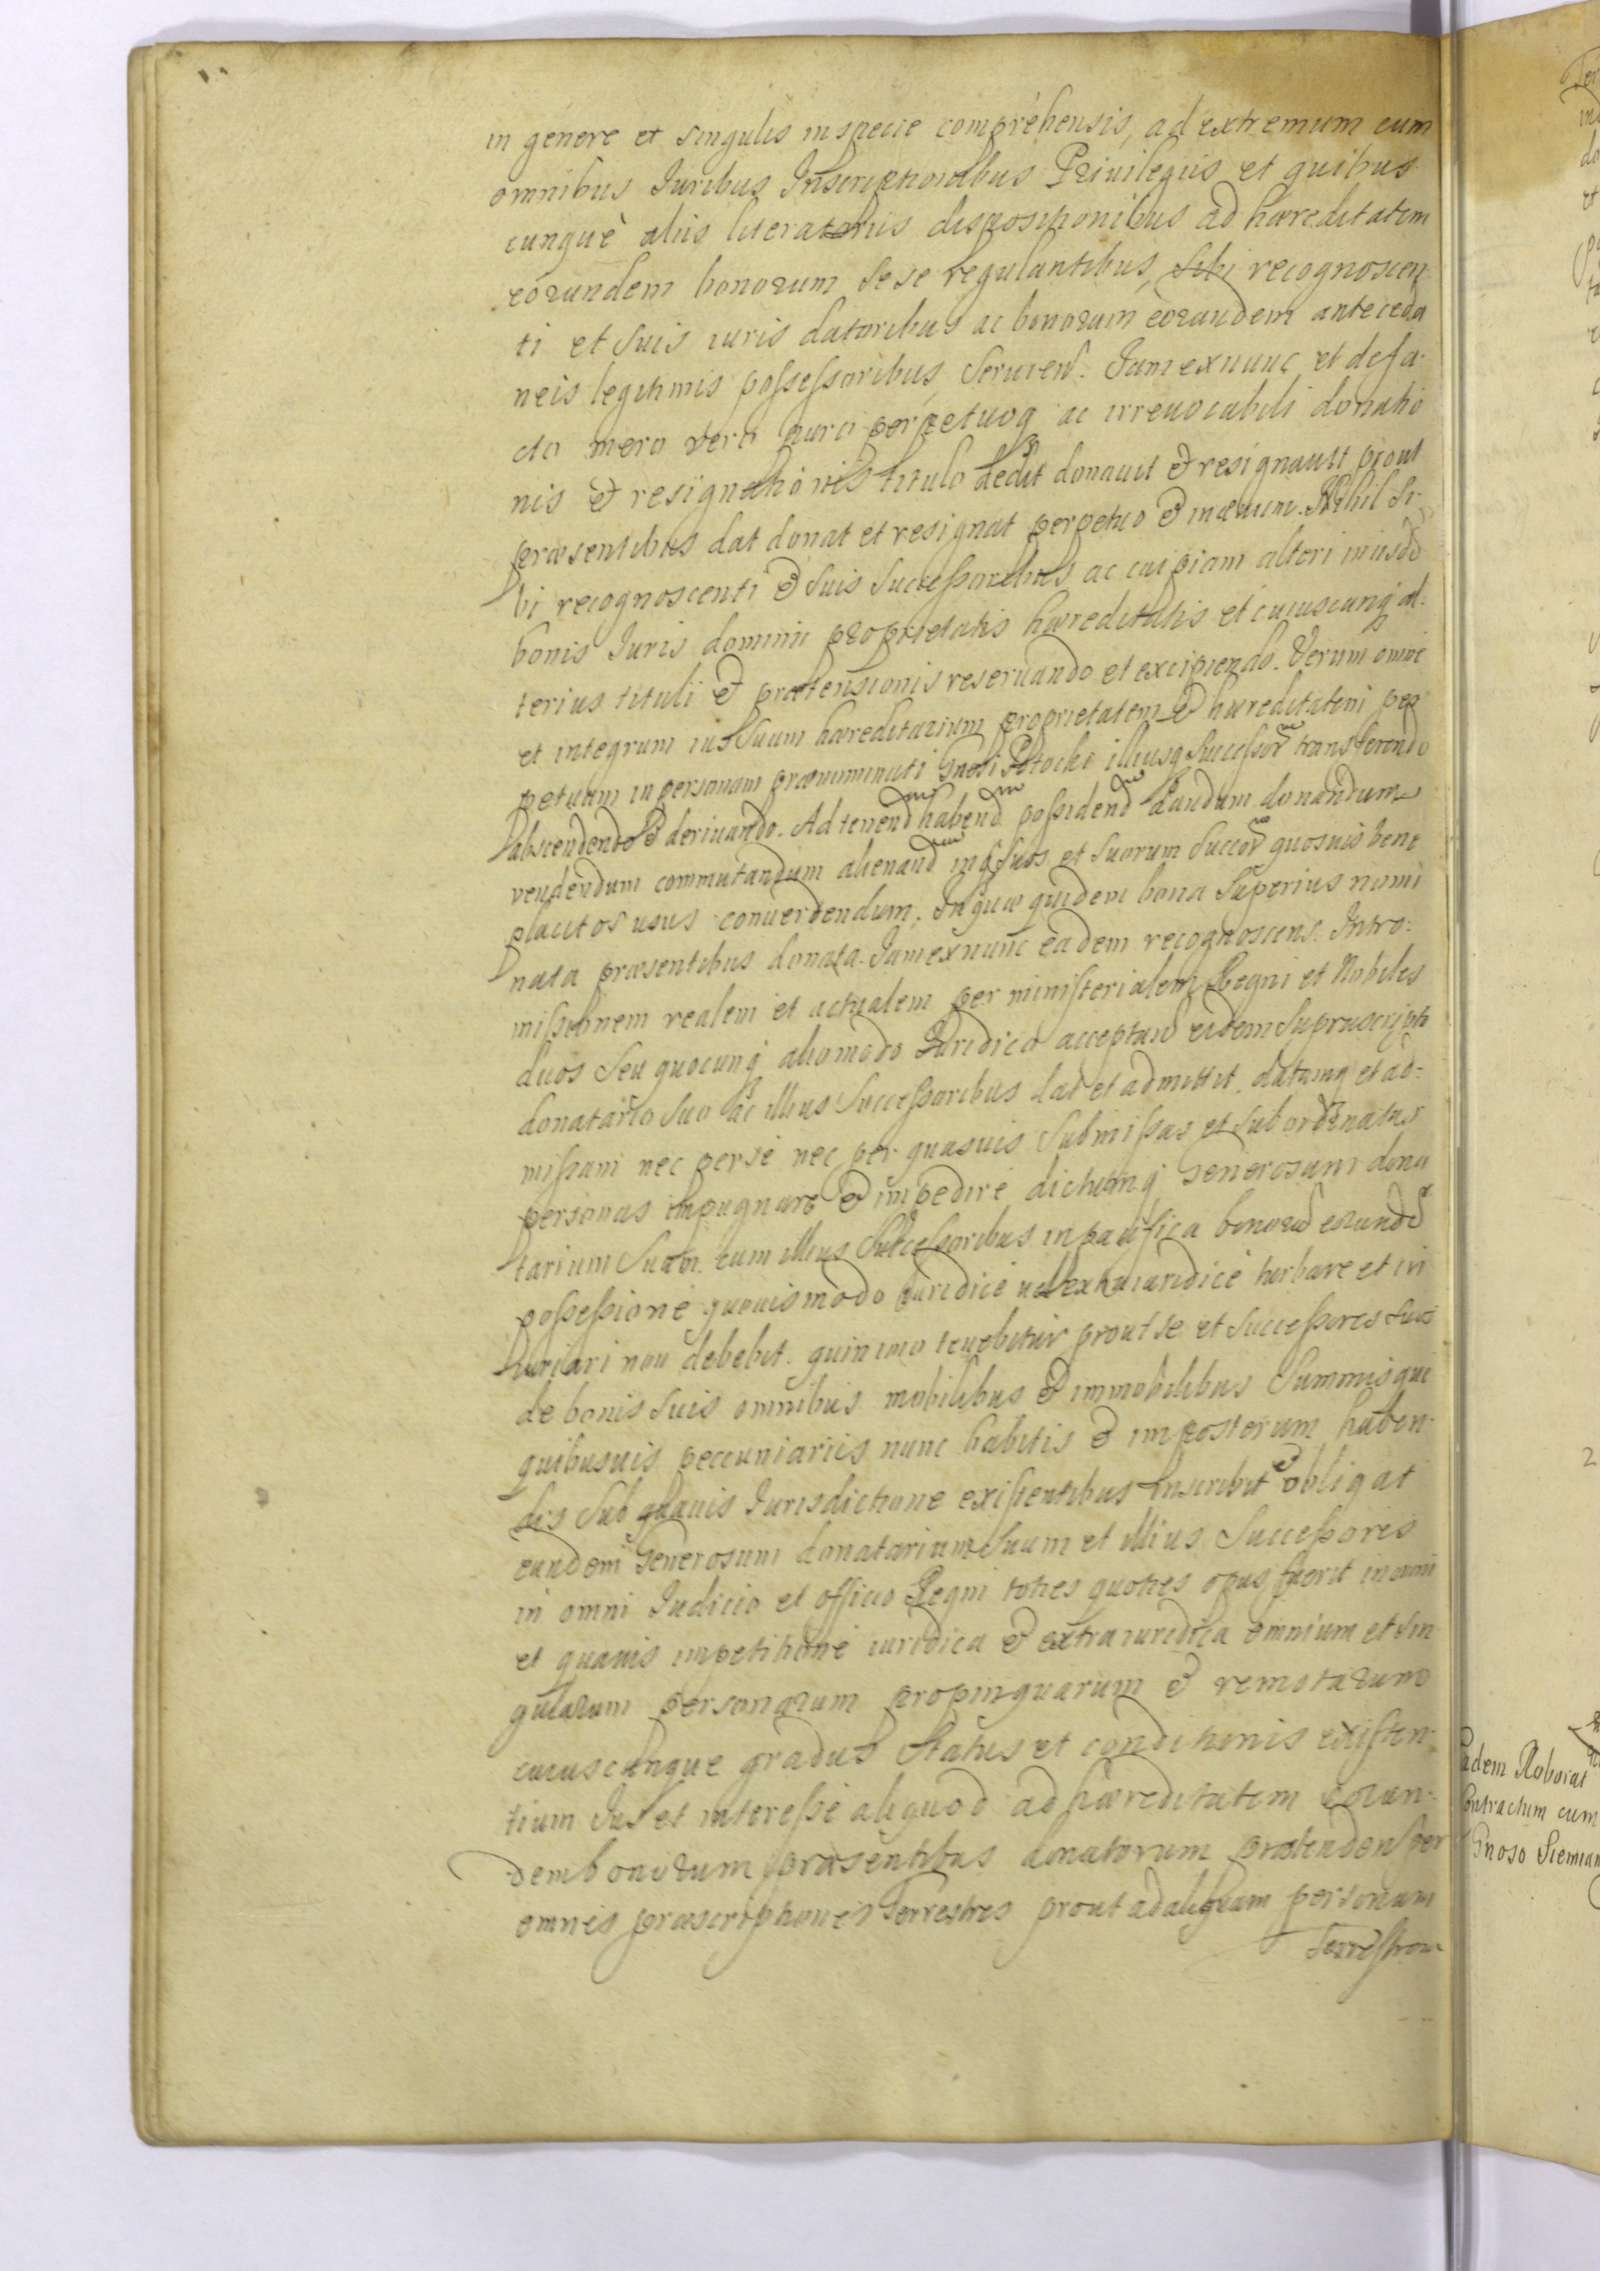 in genere et singulis in specie comprehensis, ad extremum cum
omnibus Iuribus Inscriptionibus Priuilegiis et quibus
cunquè aliis literatoriis dispositionibus ad hæreditatem
eorundem bonorum sese regulantibus, sibi recognoscen
ti et suis iuris datoribus ac bonorum eorundem anteceda
neis legitimis possessoribus seruien. Iam ex nunc et de fa-
cto mero vero puro perpetuoq ac irreuocabili donatio
nis et resignationis titulo dedit donauit et resignauit prout
præsentibus dat donat et resignat perpetuo et in æuum. Nihil si-
bi recognoscenti et suis successoribus ac cuipiam alteri in iisdē
bonis Iuris dominii proprietatis hæreditatis et cuiuscunq al-
terius tituli et prætensionis reseruando et excipiendo. Verum omne
et integrum ius suum hæreditarium proprietatem et hæreditatem per
petuam in personam prænominati Gnosi Potocki illiusq successor transferendo
abscendendo et deriuando. Ad tenend habend possidend dandum donandum
vendendum commutandum alienand inq suos et suorum succor quosuis bene
placitos usus conuertendum. In quæ quidem bona superius nomi
nata præsentibus donata. Iam ex nunc eadem recognoscens Intro-
missionem realem et actualem per ministerialem Regni et Nobiles
duos seu quocunq alio modo Iuridico acceptand eidem suprascripto
donatario suo ac illius successoribus dat et admittit. datamq et ad-
missam nec per se nec per quasuis submissas et subordinatas
personas impugnare et impedire dictumq Generosum dona
tarium suum cum illius successoribus in pacifica bonorū eorundē
possessione quouis modo iuridice uel extraiuridice turbare et in
iuriari non debebit. quin imo tenebitur prout se et successores suos
de bonis suis omnibus mobilibus et immobilibus summisque
quibusuis peccuniariis nunc habitis et imposterum haben-
dis sub quauis Iurisdictione existentibus inscribit et obligat
eundem Generosum donatarium suum et illius successores
in omni Iudicio et officio Regni toties quoties opus fuerit in omni
et quauis impetitione iuridica et extraiuridica omnium et sin
gularum personarum propinquarum et remotarum
cuiuscunque gradus status et conditionis existen-
tium Ius et interesse aliquod ad hæreditatem eorun-
dem bonorum præsentibus donatorum prætenden per
omnes præscriptiones Terrestres prout ad aliquam personam
Terrestrem
eadem Roborat
Contractum cum
Gnoso Siemian